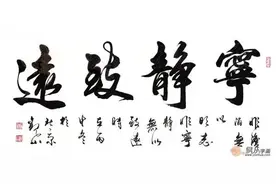 寧靜致遠
非淡泊無
以
明志
非寧
靜
無以
致遠
時
申冬
於
北京